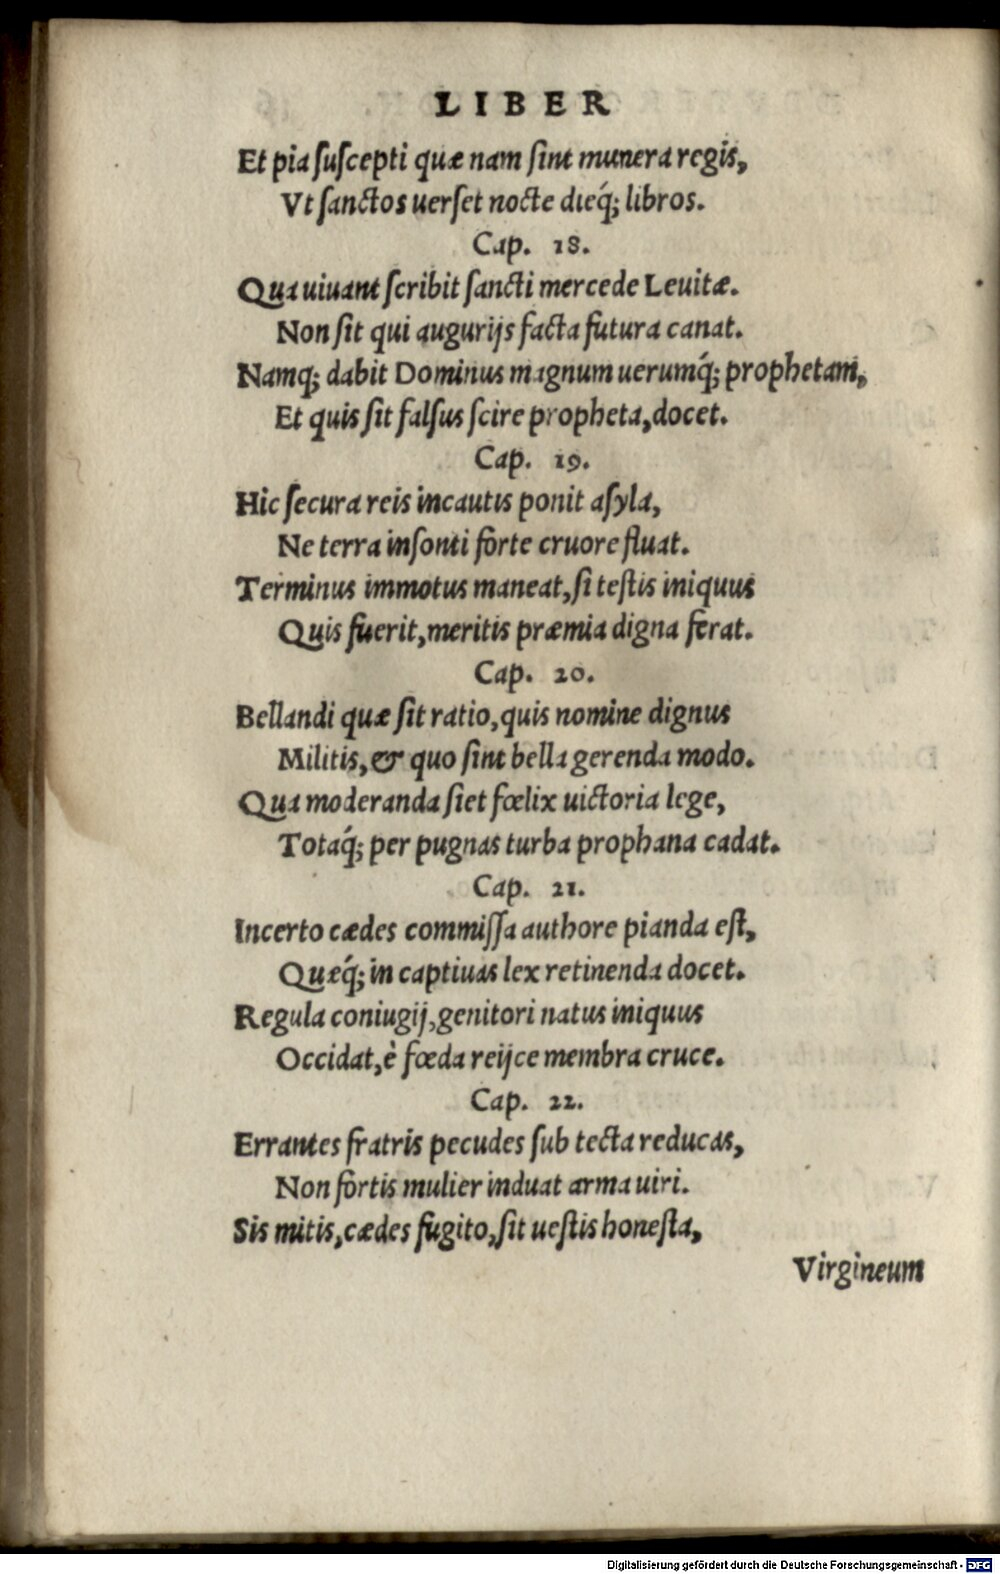 LIBER
Et pia ſuſcepti quæ nam ſint munera regis,
Vt ſanctos uerſet nocte dieq́; libros.
Cap. 18.
Qua uiuant ſcribit ſancti mercede Leuitæ.
Non ſit qui augurijs facta futura canat.
Namq; dabit Dominus magnum uerumq́; prophetam,
Et quis ſit falſus ſcire propheta, docet.
Cap. 19.
Hic ſecura reis incautis ponit aſyla,
Ne terra inſonti forte cruore fluat.
Terminus immotus maneat, ſi teſtis iniquus
Quis fuerit, meritis præmia digna ferat.
Cap. 20.
Bellandi quæ ſit ratio, quis nomine dignus
Militis, & quo ſint bella gerenda modo.
Qua moderanda ſiet fœlix uictoria lege,
Totaq́; per pugnas turba prophana cadat.
Cap. 21.
Incerto cædes commiſſa authore pianda eſt,
Quæq́; in captiuas lex retinenda docet.
Regula coniugij, genitori natus iniquus
Occidat, è fœda reijce membra cruce.
Cap. 22.
Errantes fratris pecudes ſub tecta reducas,
Non fortis mulier induat arma uiri.
Sis mitis, cædes fugito, ſit ueſtis honeſta,
Virgineum
Digitalisierung gefördert durch die Deutsche Forschungsgemeinschaft - DFG